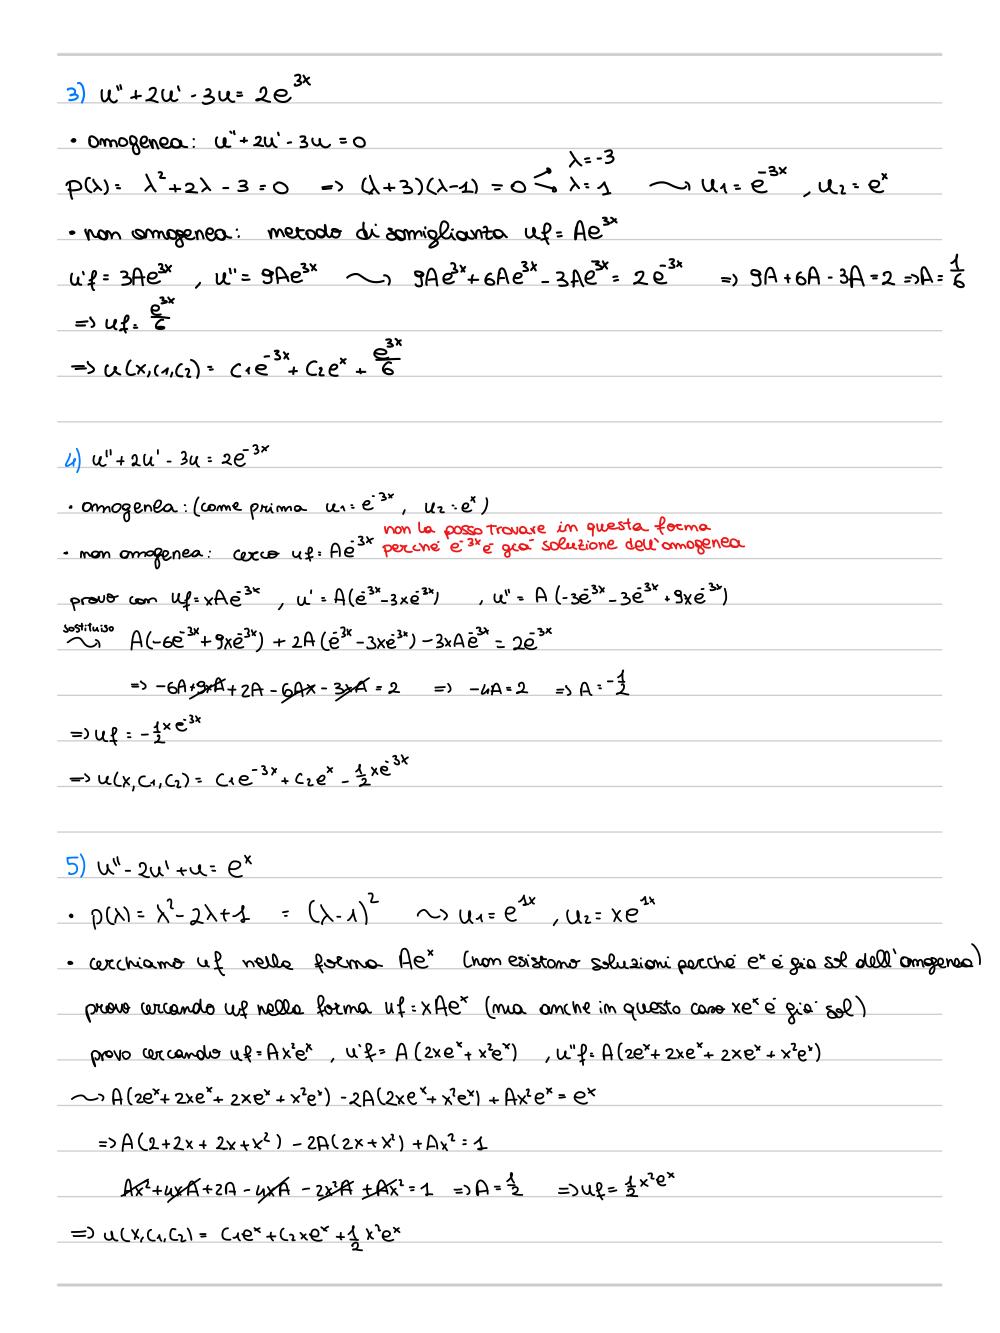 3) u'' + 2u' - 3u = 2e^{3x}
• omogenea: u'' + 2u' - 3u = 0
p(λ) = λ² + 2λ - 3 = 0 => (λ+3)(λ-1) = 0 λ = -3 λ = 1 ⤳ u₁ = e^{-3x}, u₂ = e^x
• non omogenea: metodo di somiglianza uf = Ae^{3x}
u'f = 3Ae^{3x}, u'' = 9Ae^{3x} ⤳ 9Ae^{3x} + 6Ae^{3x} - 3Ae^{3x} = 2e^{-3x} => 9A + 6A - 3A = 2 => A = 1/6
=> uf = e^{3x}/6
=> u(x,c₁,c₂) = c₁e^{-3x} + c₂e^x + e^{3x}/6
4) u'' + 2u' - 3u = 2e^{-3x}
• omogenea: (come prima u₁ = e^{-3x}, u₂ = e^x)
• non omogenea: cerco uf = Ae^{-3x} non la posso trovare in questa forma
perché e^{-3x} è già soluzione dell'omogenea
provo con uf = xAe^{-3x}, u' = A(e^{-3x} - 3xe^{-3x}), u'' = A(-3e^{-3x} - 3e^{-3x} + 9xe^{-3x})
sostituiso ⤳ A(-6e^{-3x} + 9xe^{-3x}) + 2A(e^{-3x} - 3xe^{-3x}) - 3xAe^{-3x} = 2e^{-3x}
=> -6A + 9xA + 2A - 6Ax - 3xA = 2 => -4A = 2 => A = -1/2
=> uf = -1/2 xe^{-3x}
=> u(x,c₁,c₂) = c₁e^{-3x} + c₂e^x - 1/2 xe^{-3x}
5) u'' - 2u' + u = e^x
• p(λ) = λ² - 2λ + 1 = (λ-1)² ⤳ u₁ = e^{1x}, u₂ = xe^{1x}
• cerchiamo uf nella forma Ae^x (non esistono soluzioni perché e^x è già sol dell'omogenea)
provo cercando uf nella forma uf = xAe^x (ma anche in questo caso xe^x è già sol)
provo cercando uf = Ax²e^x, u'f = A(2xe^x + x²e^x), u''f = A(2e^x + 2xe^x + 2xe^x + x²e^x)
⤳ A(2e^x + 2xe^x + 2xe^x + x²e^x) - 2A(2xe^x + x²e^x) + Ax²e^x = e^x
=> A(2 + 2x + 2x + x²) - 2A(2x + x²) + Ax² = 1
Ax² + 4xA + 2A - 4xA - 2x²A + Ax² = 1 => A = 1/2 => uf = 1/2 x²e^x
=> u(x,c₁,c₂) = c₁e^x + c₂xe^x + 1/2 x²e^x